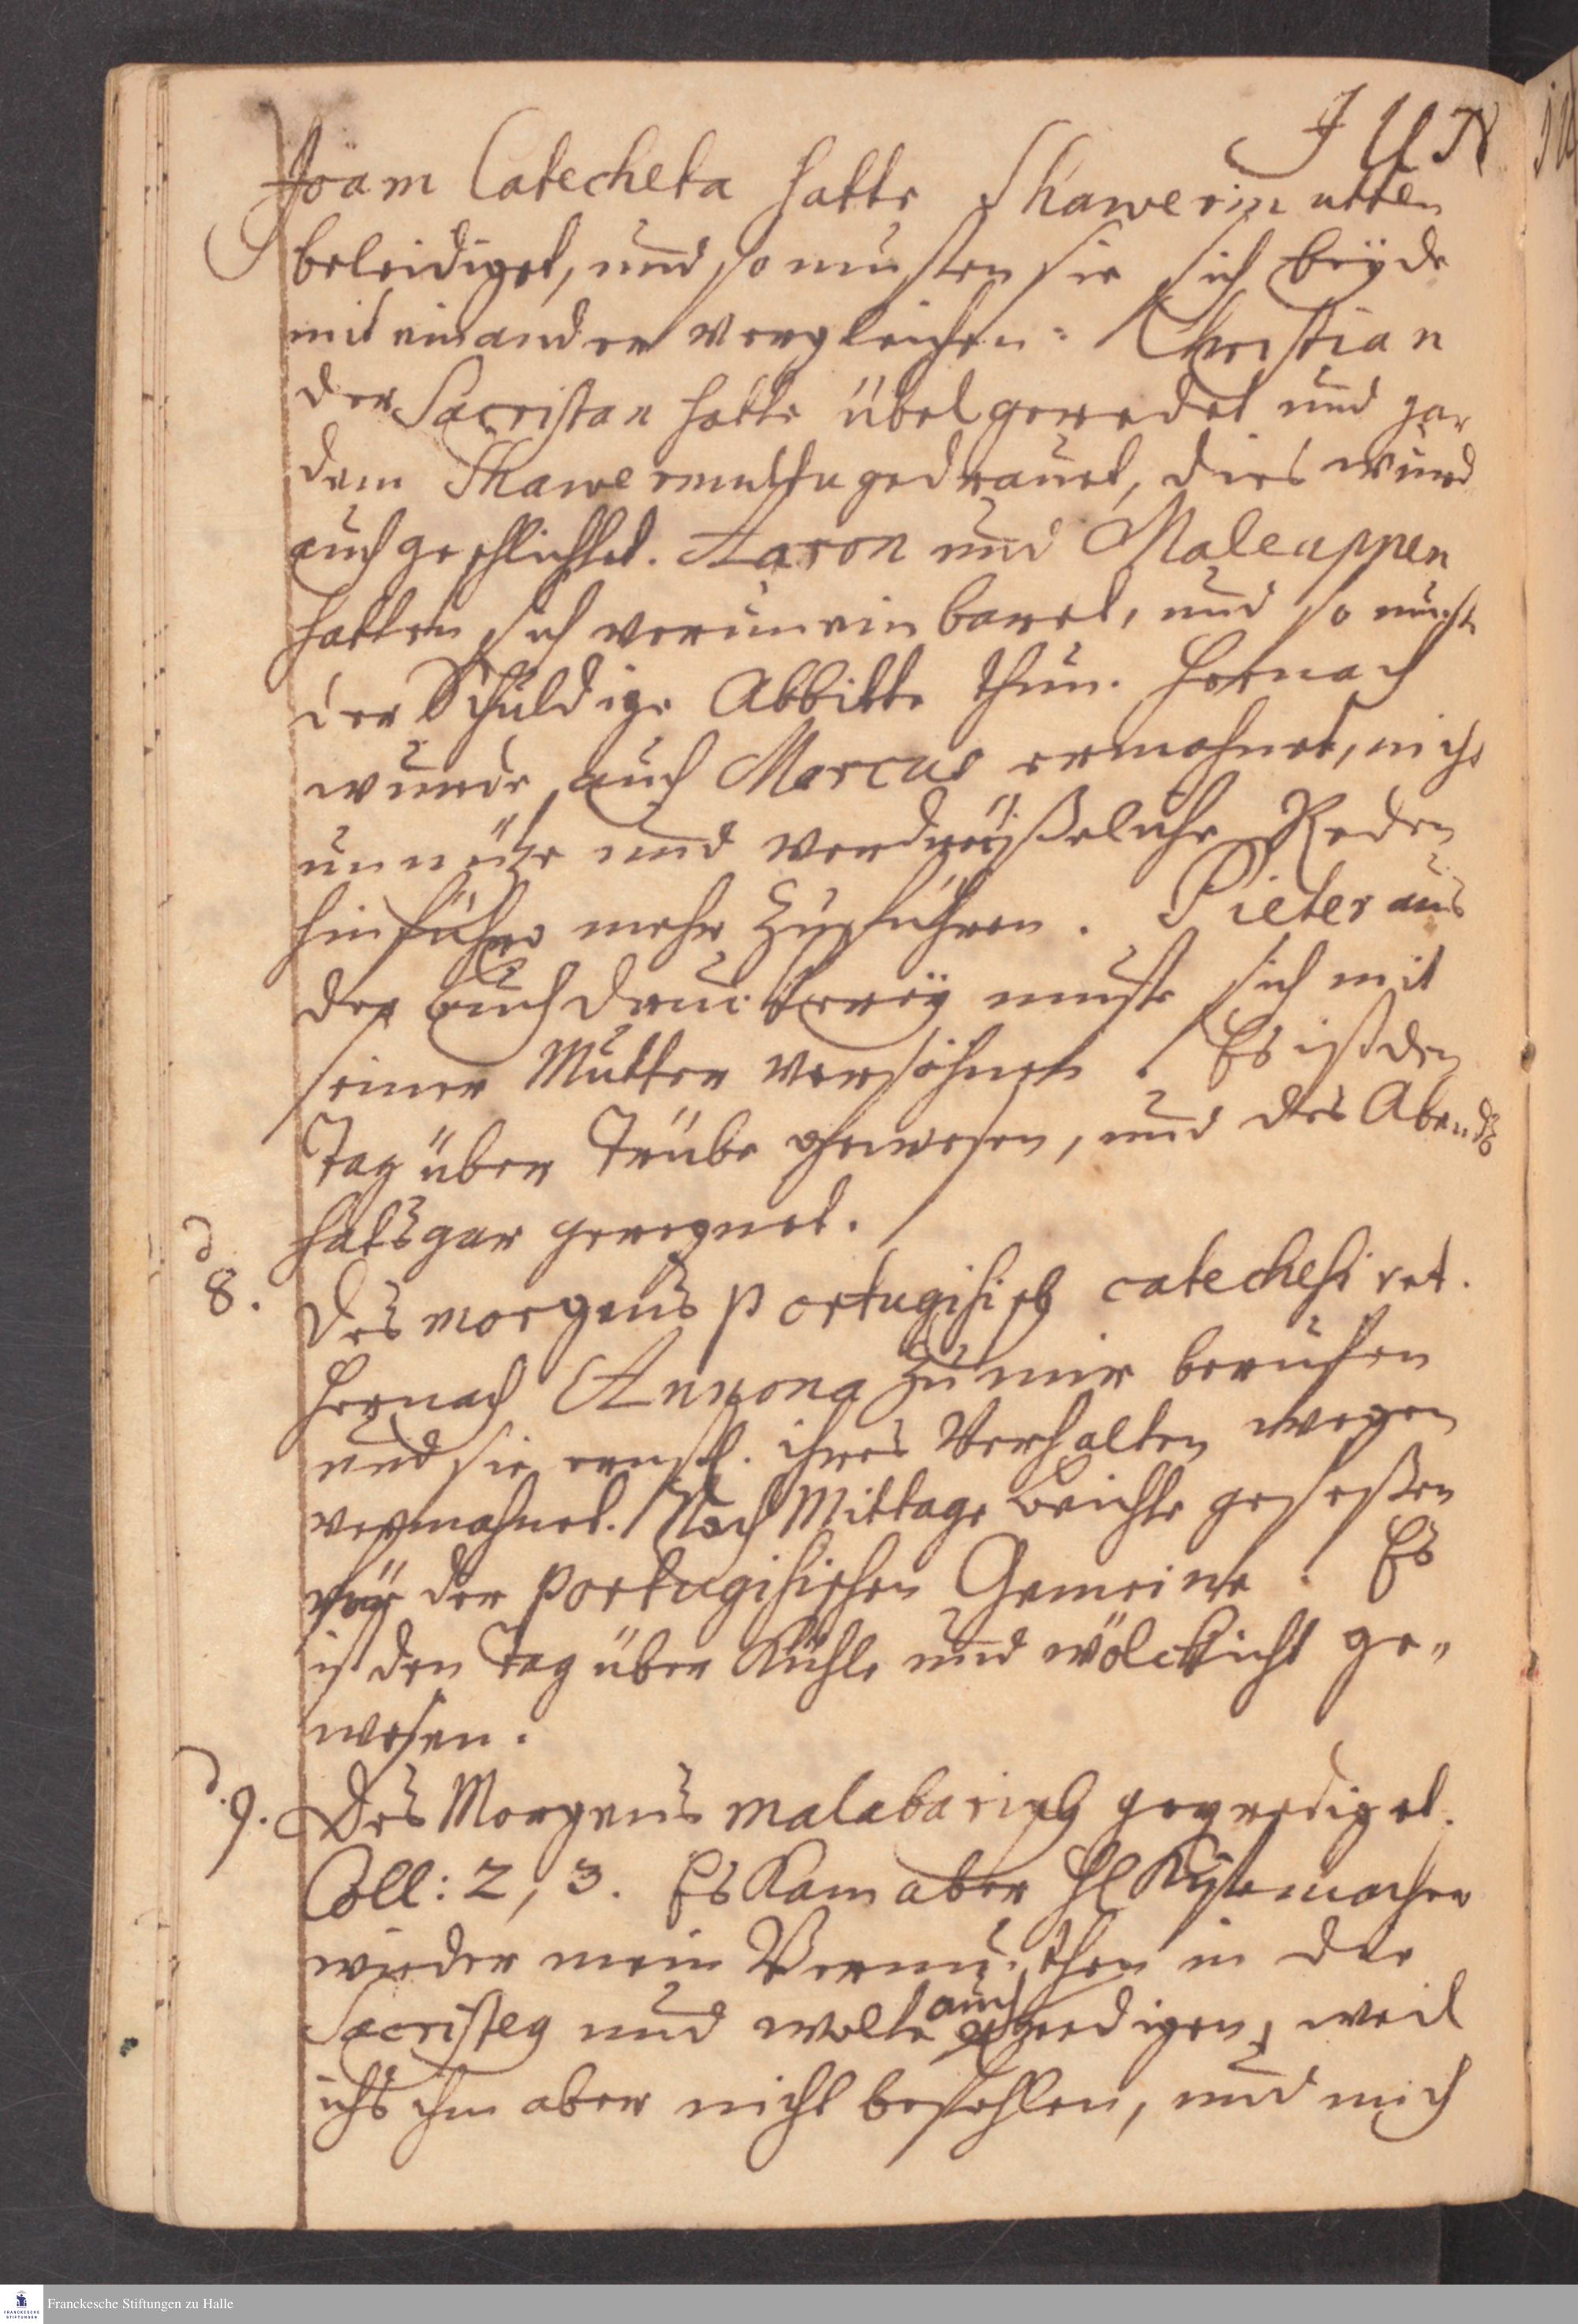 JUN
Joam Catecheta hatte Shawerimutten
beleidiget, und so musten sie sich beÿde
mit einander vergleichen: Christian
der Sacristan hatte übel geredet und gar
dem Shawerimuttu gedrauet, dies wurd
auch geschlichtet. Aaron und Maleappen
hatten sich veruneinbaret, und so muste
der Schuldige Abbitte thun. Hernach
wurde auch Marcus ermahnet, nicht
unnütze und verdrüßeliche Reden
hinführo mehr zu führen. Pieter aus
der buchdruckereÿ muste sich mit
seiner Mutter versöhnen. Es ist den
Tag über Trübe gewesen, und des Abends
hats gar geregnet.
d 8. Des morgens portugisisch catechesiret.
Hernach zu mir berufen
und sie ernstl. ihres Verhalten wegen
vermahnet. Nach Mittage beichte geseßen
vor der portugisischen Gemeine. Es
ist den Tag über Kühle und wölckicht ge-
wesen.
d. 9. Des Morgens malabarisch geprediget.
Coll: 2, 3. Es kam aber H
wieder mein Vermuthen in der
Sacristey und wolte auch predigen, weil
ichs ihm aber nicht befohlen, und mich
Franckesche Stiftungen zu Halle